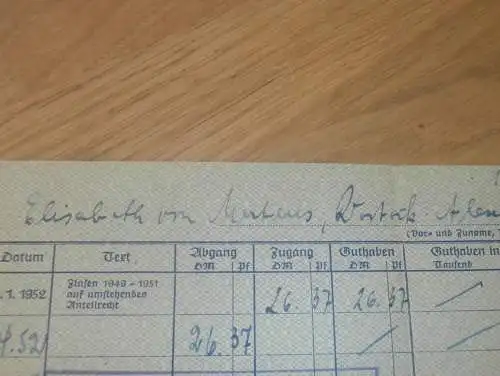 Elisabeth von Mertens, Rostock-
(Vor- und Zuname,
Datum Text Abgang Zugang Guthaben Guthaben in
DM Pf DM Pf DM Pf Tausend
.1.1952 Zinsen 1949 - 1951 26. 37 26. 37
auf umstehenden
Anteilrecht
4.52 26. 37